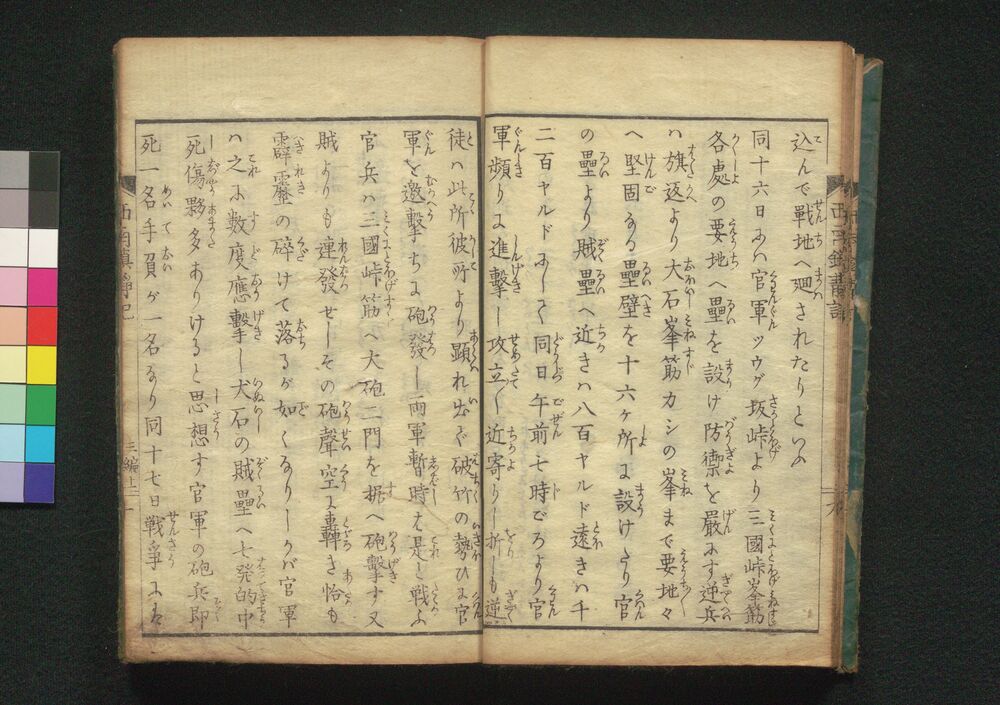 込んで戦地へ廻されたりといふ
同十六日にハ官軍ツウグ坂峠より三國峠峯筋
各處の要地へ壘を設け防禦を嚴にす逆兵
ハ旗返より大石峯筋カシの峯まで要地々々
へ堅固なる壘壁を十六ヶ所に設けたり官
の壘より賊壘へ近きハ八百ヤルド遠きハ千
二百ヤルドにして同日午前七時ごろより官
軍頻りに進撃し攻立て近寄りし折しも逆
徒ハ此所彼所より顕れ出で破竹の勢ひに官
軍を邀撃ちに砲發し両軍暫時ハ是と戦ふ
官兵ハ三國峠筋へ大砲二門を据へ砲撃す又
賊よりも連發せしその砲聲空に轟き恰も
霹靂の碎けて落るが如くなりしが官軍
ハ之に数度應撃し犬石の賊壘へ七発的中
し死傷夥多ありけると思想す官軍の砲兵即
死一名手負が一名なり同十七日戦争に
三編上